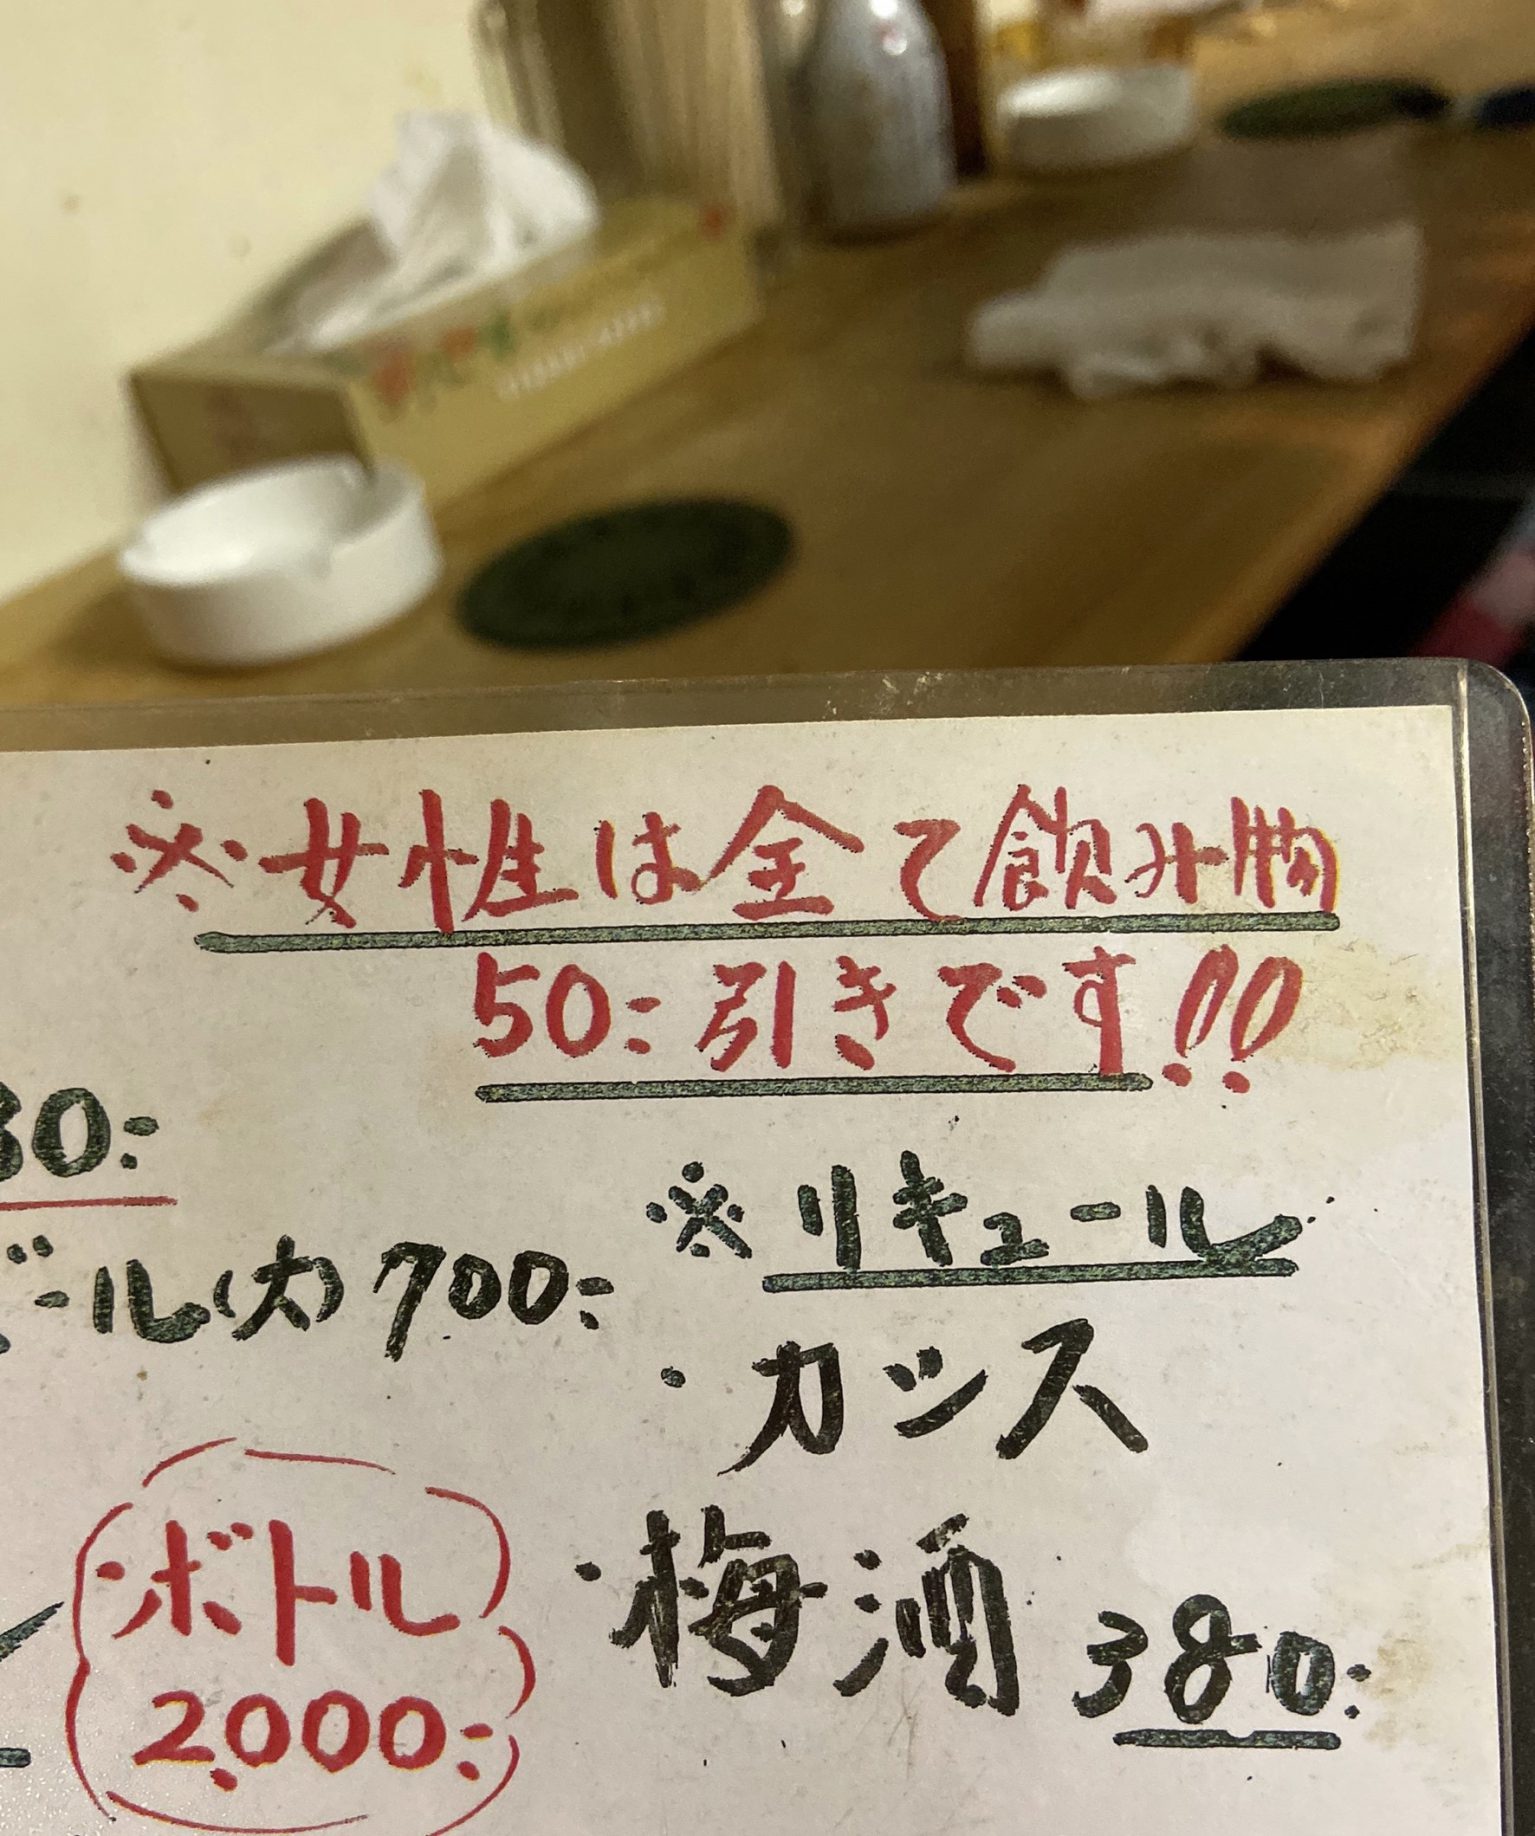 ※女性は全て飲み物
50:引きです!!
80:
ール(大)700:
※リキュール
・カシス
・梅酒 380:
ボトル
2,000: